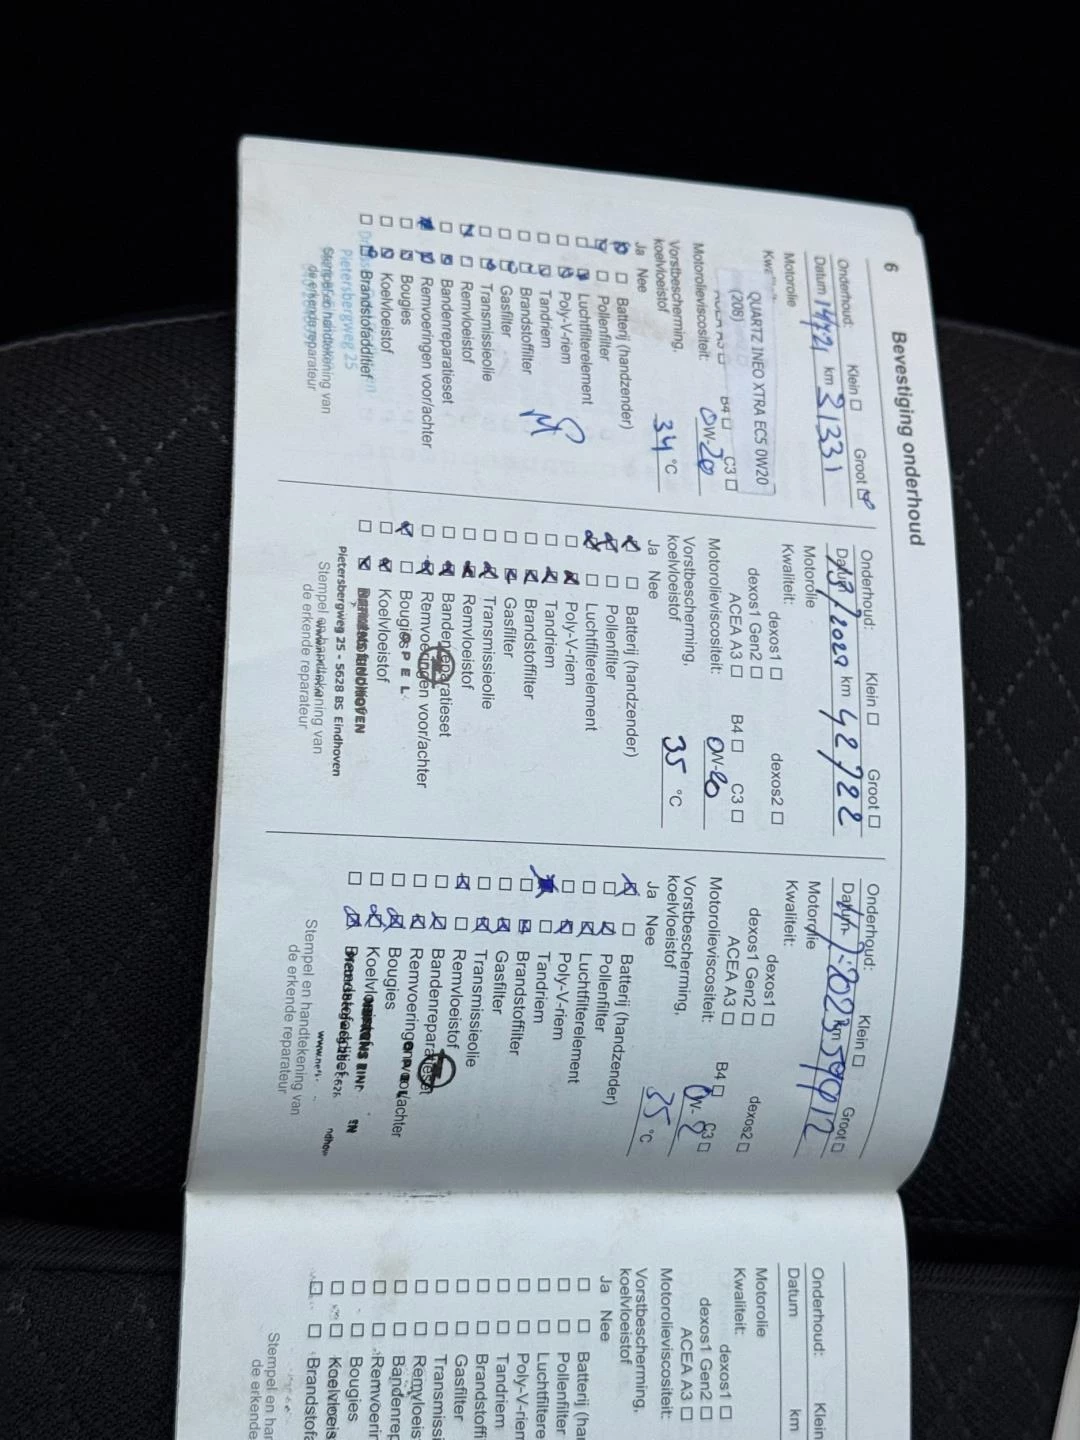 6
Bevestiging onderhoud
Onderhoud: Klein ☐ Groot ☒
Datum km 31331
Motorolie
QUARTZ INEO XTRA EC5 0W20
(208)
B4 ☐ C3 ☐
Motorolieviscositeit: 0W-20
Vorstbescherming,
koelvloeistof 34 °C
Ja Nee
☒ ☐ Batterij (handzender)
☒ ☐ Pollenfilter
☐ ☒ Luchtfilterelement
☐ ☒ Poly-V-riem
☐ ☒ Tandriem
☐ ☒ Brandstoffilter
☐ ☒ Gasfilter
☐ ☒ Transmissieolie
☒ ☐ Remvloeistof
☐ ☒ Bandenreparatieset
☒ Remvoeringen voor/achter
☐ ☒ Bougies
☐ ☒ Koelvloeistof
☐ ☒ Brandstofadditief
Pietersbergweg 25
Stempel en handtekening van
de erkende reparateur
Onderhoud: Klein ☐ Groot ☐
Datum km 48722
Motorolie
Kwaliteit: dexos1 ☐ dexos2 ☐
dexos1 Gen2 ☐
ACEA A3 ☐ B4 ☐ C3 ☐
Motorolieviscositeit:
Vorstbescherming,
koelvloeistof 35 °C
Ja Nee
☒ ☐ Batterij (handzender)
☒ ☐ Pollenfilter
☒ ☐ Luchtfilterelement
☐ ☒ Poly-V-riem
☐ ☒ Tandriem
☐ ☒ Brandstoffilter
☐ ☒ Gasfilter
☐ ☒ Transmissieolie
☐ ☒ Remvloeistof
☐ ☒ Bandenreparatieset
☐ ☒ Remvoeringen voor/achter
☒ ☐ Bougies
OPEL
☐ ☒ Koelvloeistof
☐ ☒ EINDHOVEN
Pietersbergweg 25 - 5628 BS Eindhoven
Stempel en handtekening van
de erkende reparateur
Onderhoud: Klein ☐ Groot ☐
Datum 2023 km
Motorolie
Kwaliteit: dexos1 ☐ dexos2 ☐
dexos1 Gen2 ☐
ACEA A3 ☐ B4 ☐ C3 ☐
Motorolieviscositeit:
Vorstbescherming,
koelvloeistof 35 °C
Ja Nee
☒ ☐ Batterij (handzender)
☐ ☒ Pollenfilter
☐ ☒ Luchtfilterelement
☐ ☒ Poly-V-riem
☒ ☐ Tandriem
☐ ☒ Brandstoffilter
☐ ☒ Gasfilter
☐ ☒ Transmissieolie
☒ ☐ Remvloeistof
☐ ☒ Bandenreparatieset
☐ ☒ Remvoeringen voor/achter
☐ ☒ Bougies
☐ ☒
☐ ☒
Stempel en handtekening van
de erkende reparateur
Onderhoud: Klein
Datum km
Motorolie
Kwaliteit: dexos1 ☐
dexos1 Gen2 ☐
ACEA A3 ☐
Motorolieviscositeit:
Vorstbescherming,
koelvloeistof
Ja Nee
☐ ☐ Batterij (har
☐ ☐ Pollenfilter
☐ ☐ Luchtfiltere
☐ ☐ Poly-V-riem
☐ ☐ Tandriem
☐ ☐ Brandstoffi
☐ ☐ Gasfilter
☐ ☐ Transmiss
☐ ☐ Remvloeis
☐ ☐ Bandenrep
☐ ☐ Remvoerir
☐ ☐ Bougies
☐ ☐ Koelvloeis
☐ ☐ Brandstofa
Stempel en har
de erkende